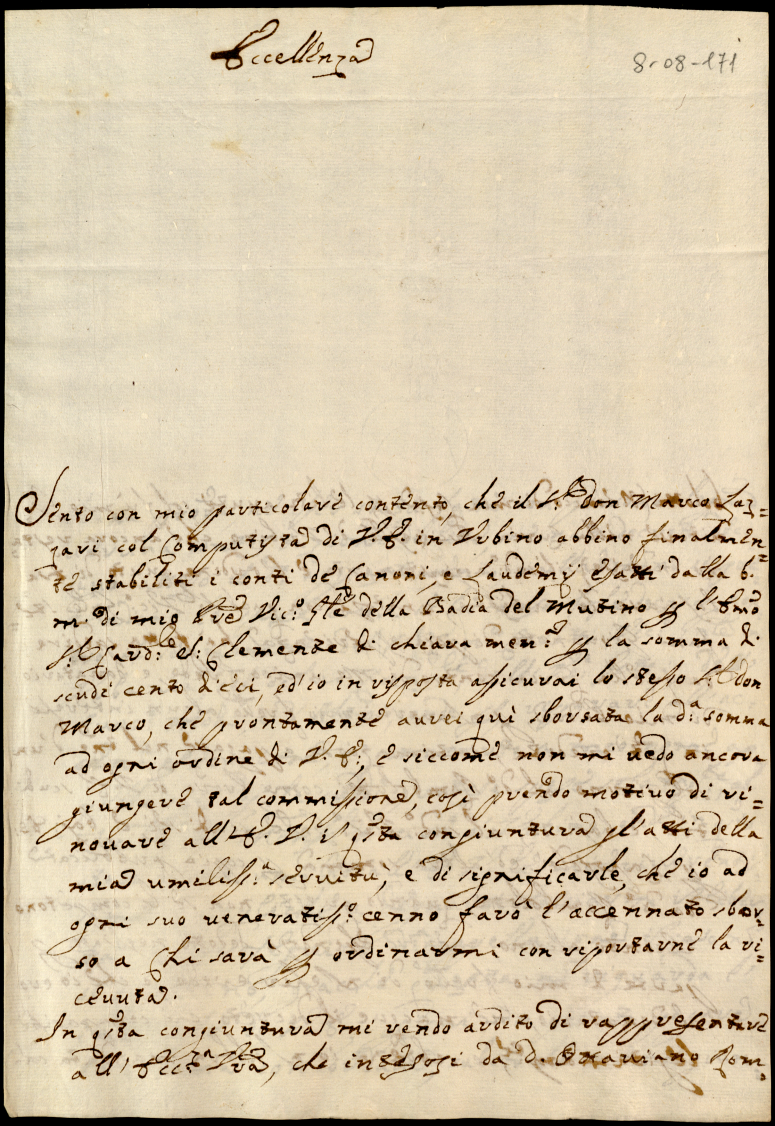 Eccellenza
8-08-171
Sento con mio particolare contento, che il Sig.r don Marco Laz=
zari col Computista di V. E. in Urbino abbino finalmen=
te stabiliti i conti de Canoni, e Laudemij esatti dalla b.
m. di mio Pre Vic.o Gle della Badia del Mutino p l'Emo
S.r Card.e S. Clemente di chiara mem.a p la somma di
scudi cento dieci, ed'io in risposta assicurai lo stesso S.r don
Marco, che prontamente aurei quì sborsata la d.a somma
ad ogni ordine di V. E., e siccome non mi vedo ancora
giungere tal commissione, così prendo motivo di ri=
novare all'E. V. in qsta congiuntura gl'atti della
mia umiliss.a servitù, e di significarle, che io ad
ogni suo veneratiss.o cenno farò l'accennato sbor=
so a chi sarà p ordinarmi con riportarne la ri=
ceuuta.
In qsta congiuntura mi rendo ardito di rappresentare
all'Ecc.za Vra, che intesosi da d. Ottaviano Rom=